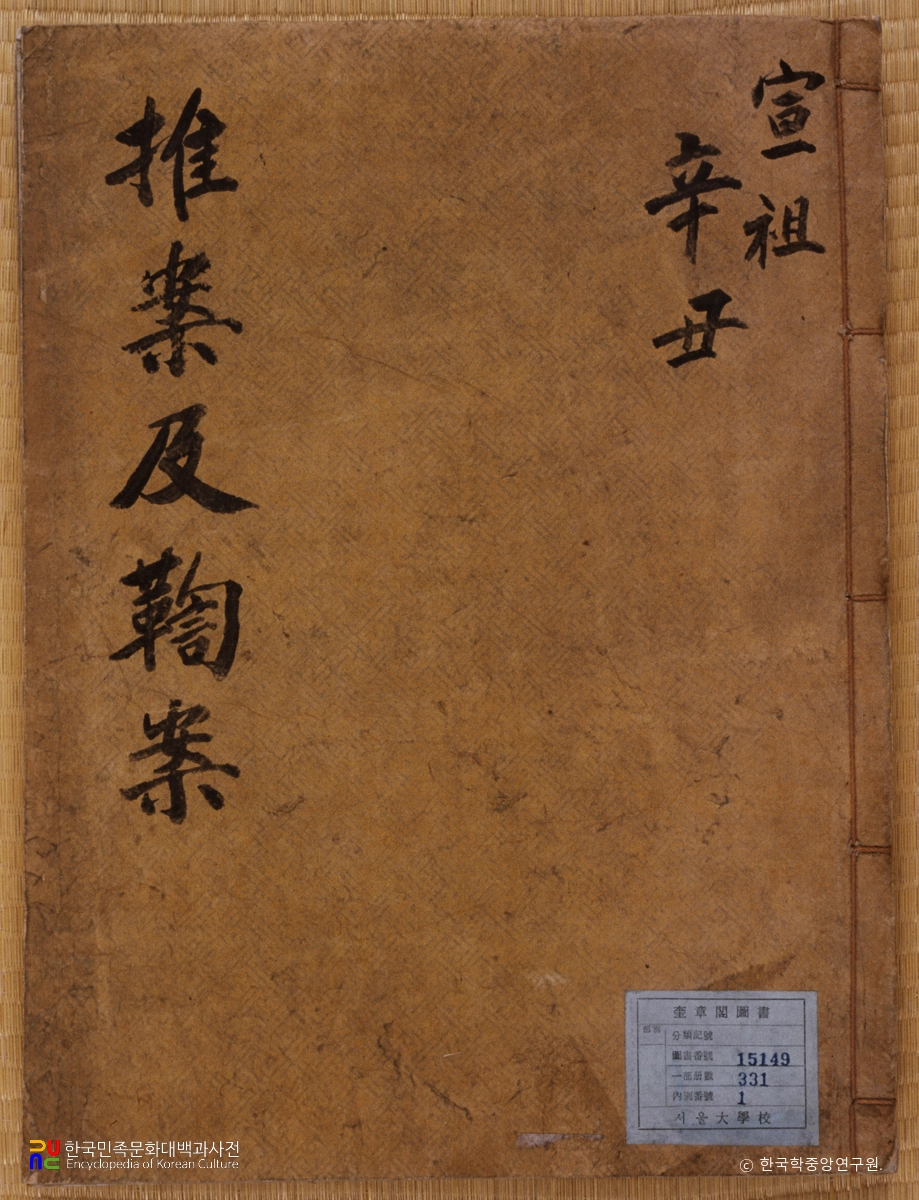 宣祖
辛丑
推案及鞫案
奎章閣圖書
分類記號
圖書番號 15149
一部册數 331
內割番號 1
서울大學校
한국민족문화대백과사전
Encyclopedia of Korean Culture
ⓒ 한국학중앙연구원.